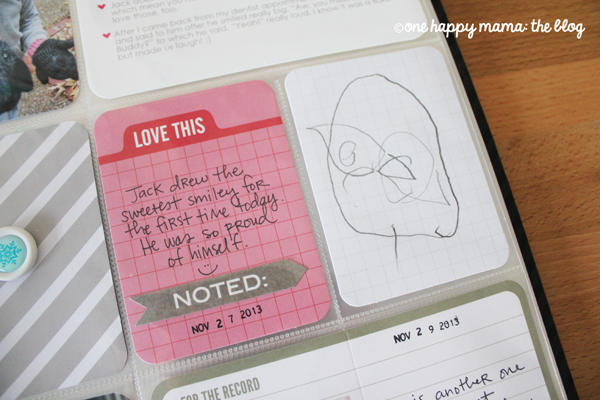 ©one happy mama: the blog
love those, too.
After I came back from my dentist appo
and said to him after he smiled really big, "Are you m
Buddy?" to which he said, "Yeah!" really loud. I know it was a fluke
but made us laugh! :)
LOVE THIS
Jack drew the
sweetest smiley for
the first time today.
He was so proud
of himself.
NOTED:
NOV 2 7 2013
NOV 2 9 2013
FOR THE RECORD
is another one